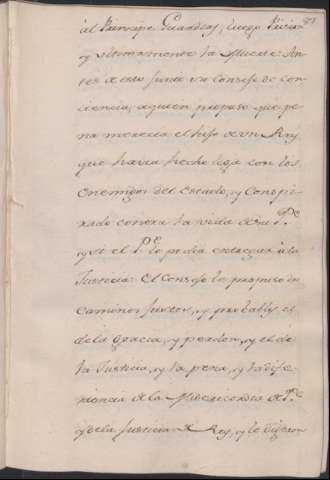 al Principe Guardias, luego Prision
y ultimamente la Muerte. An-
tes de esto junto un Consejo de con-
ciencia, a quien propuso que pe-
na merecia el hijo de un Rey
que havia hecho liga con los
Enemigos del Estado, y Conspi-
rado contra la vida de su P.e
y si el P.e lo podia entregar a la
Justicia. El Consejo le propuso dos
caminos justos, y probables el
de la gracia, y perdon, y el de
la Justicia, y la pena, y la dife-
rencia de la Misericordia de P.e
y de la Justicia de Rey, y le dixeron